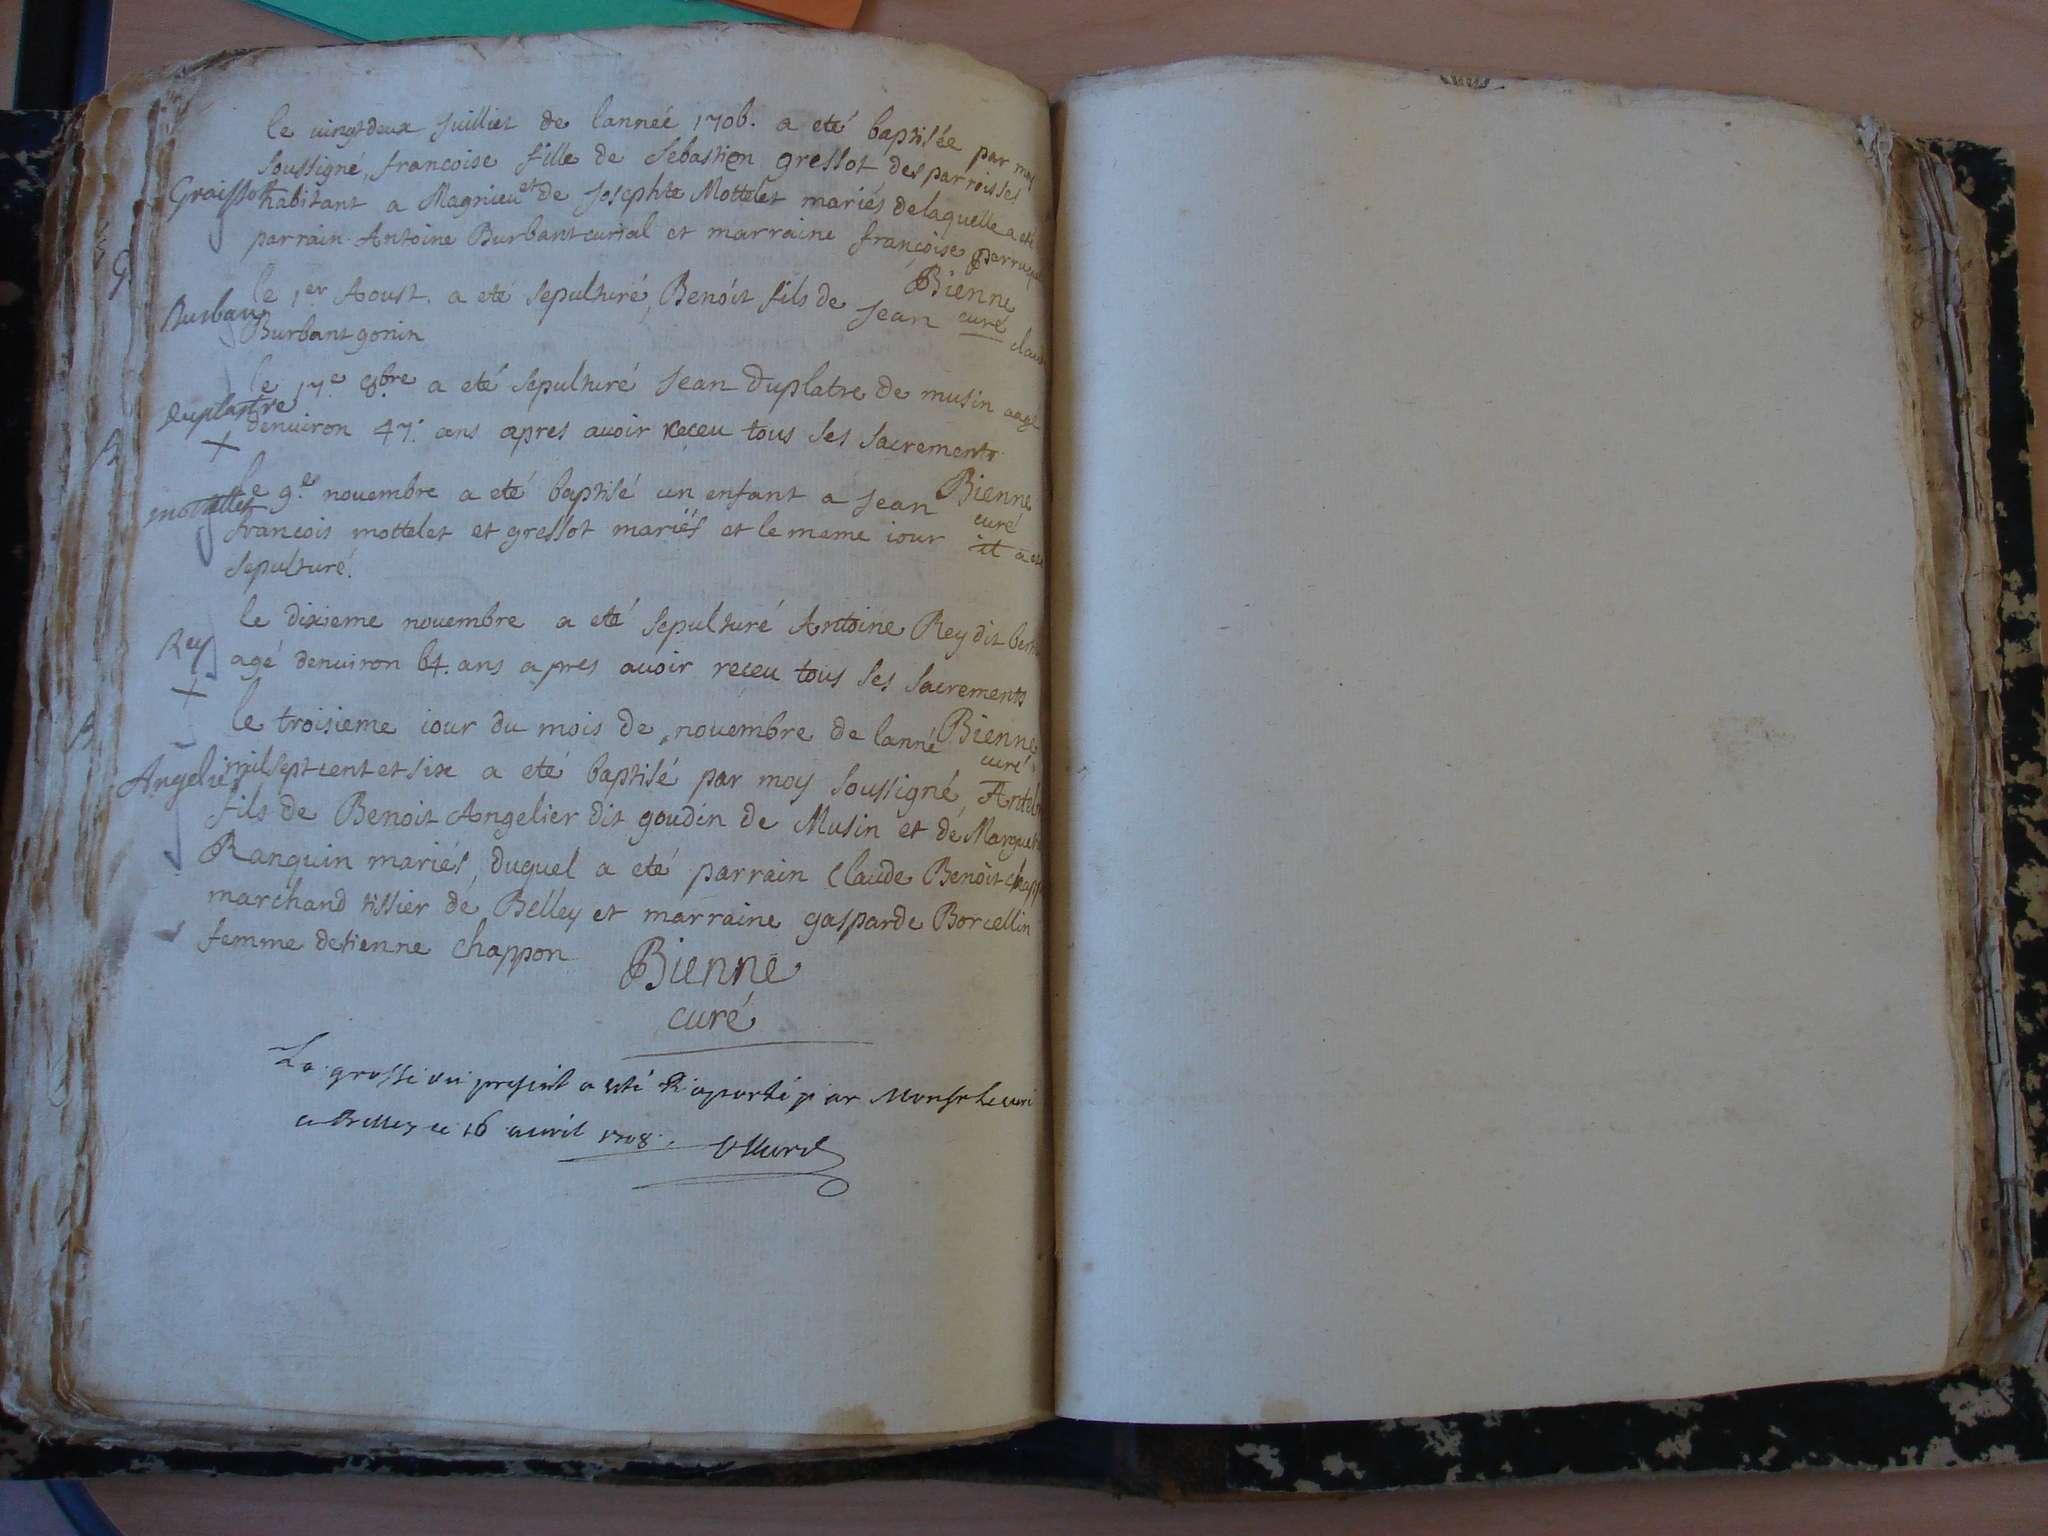 le vingtdeux Juilliet de lannéé 1706. a eté baptisée par moy
soussigné, francoise fille de sebastien gressot des parroisses
Graissot habitant a Magnieu et de Josephte Mottelet mariés delaquelle a eté
parrain Antoine Burbant curial et marraine françoise
Bienne
curé
le 1er Aoust. a eté sepulturé, Benoit fils de Jean claude
Burban Burbant gonin
le 17e 8bre a eté sepulturé Jean Duplatre de musin aagé
duplastre denuiron 47. ans apres auoir receu tous ses sacrements
Bienne
curé
le 9.e nouembre a eté baptisé un enfant a Jean
mottellet francois mottelet et gressot mariés et le meme iour il a eté
sepulturé.
le dixieme nouembre a eté sepulturé Antoine Rey dit
Rey agé denuiron 64. ans apres auoir receu tous ses sacrements
Bienne
curé
le troisieme iour du mois de nouembre de lanné
Angelier milseptcent et six a eté baptisé par moy soussigné,
fils de Benoit Angelier dit goudin de Musin et de
Ranquin mariés, duquel a eté parrain Claude Benoit
marchand tissier de Belley et marraine gasparde Borcellin
femme detienne chappon
Bienne
curé
La grosse du present a esté Raporté par Monsr le curé
a Belley ce 16 auril 1708.